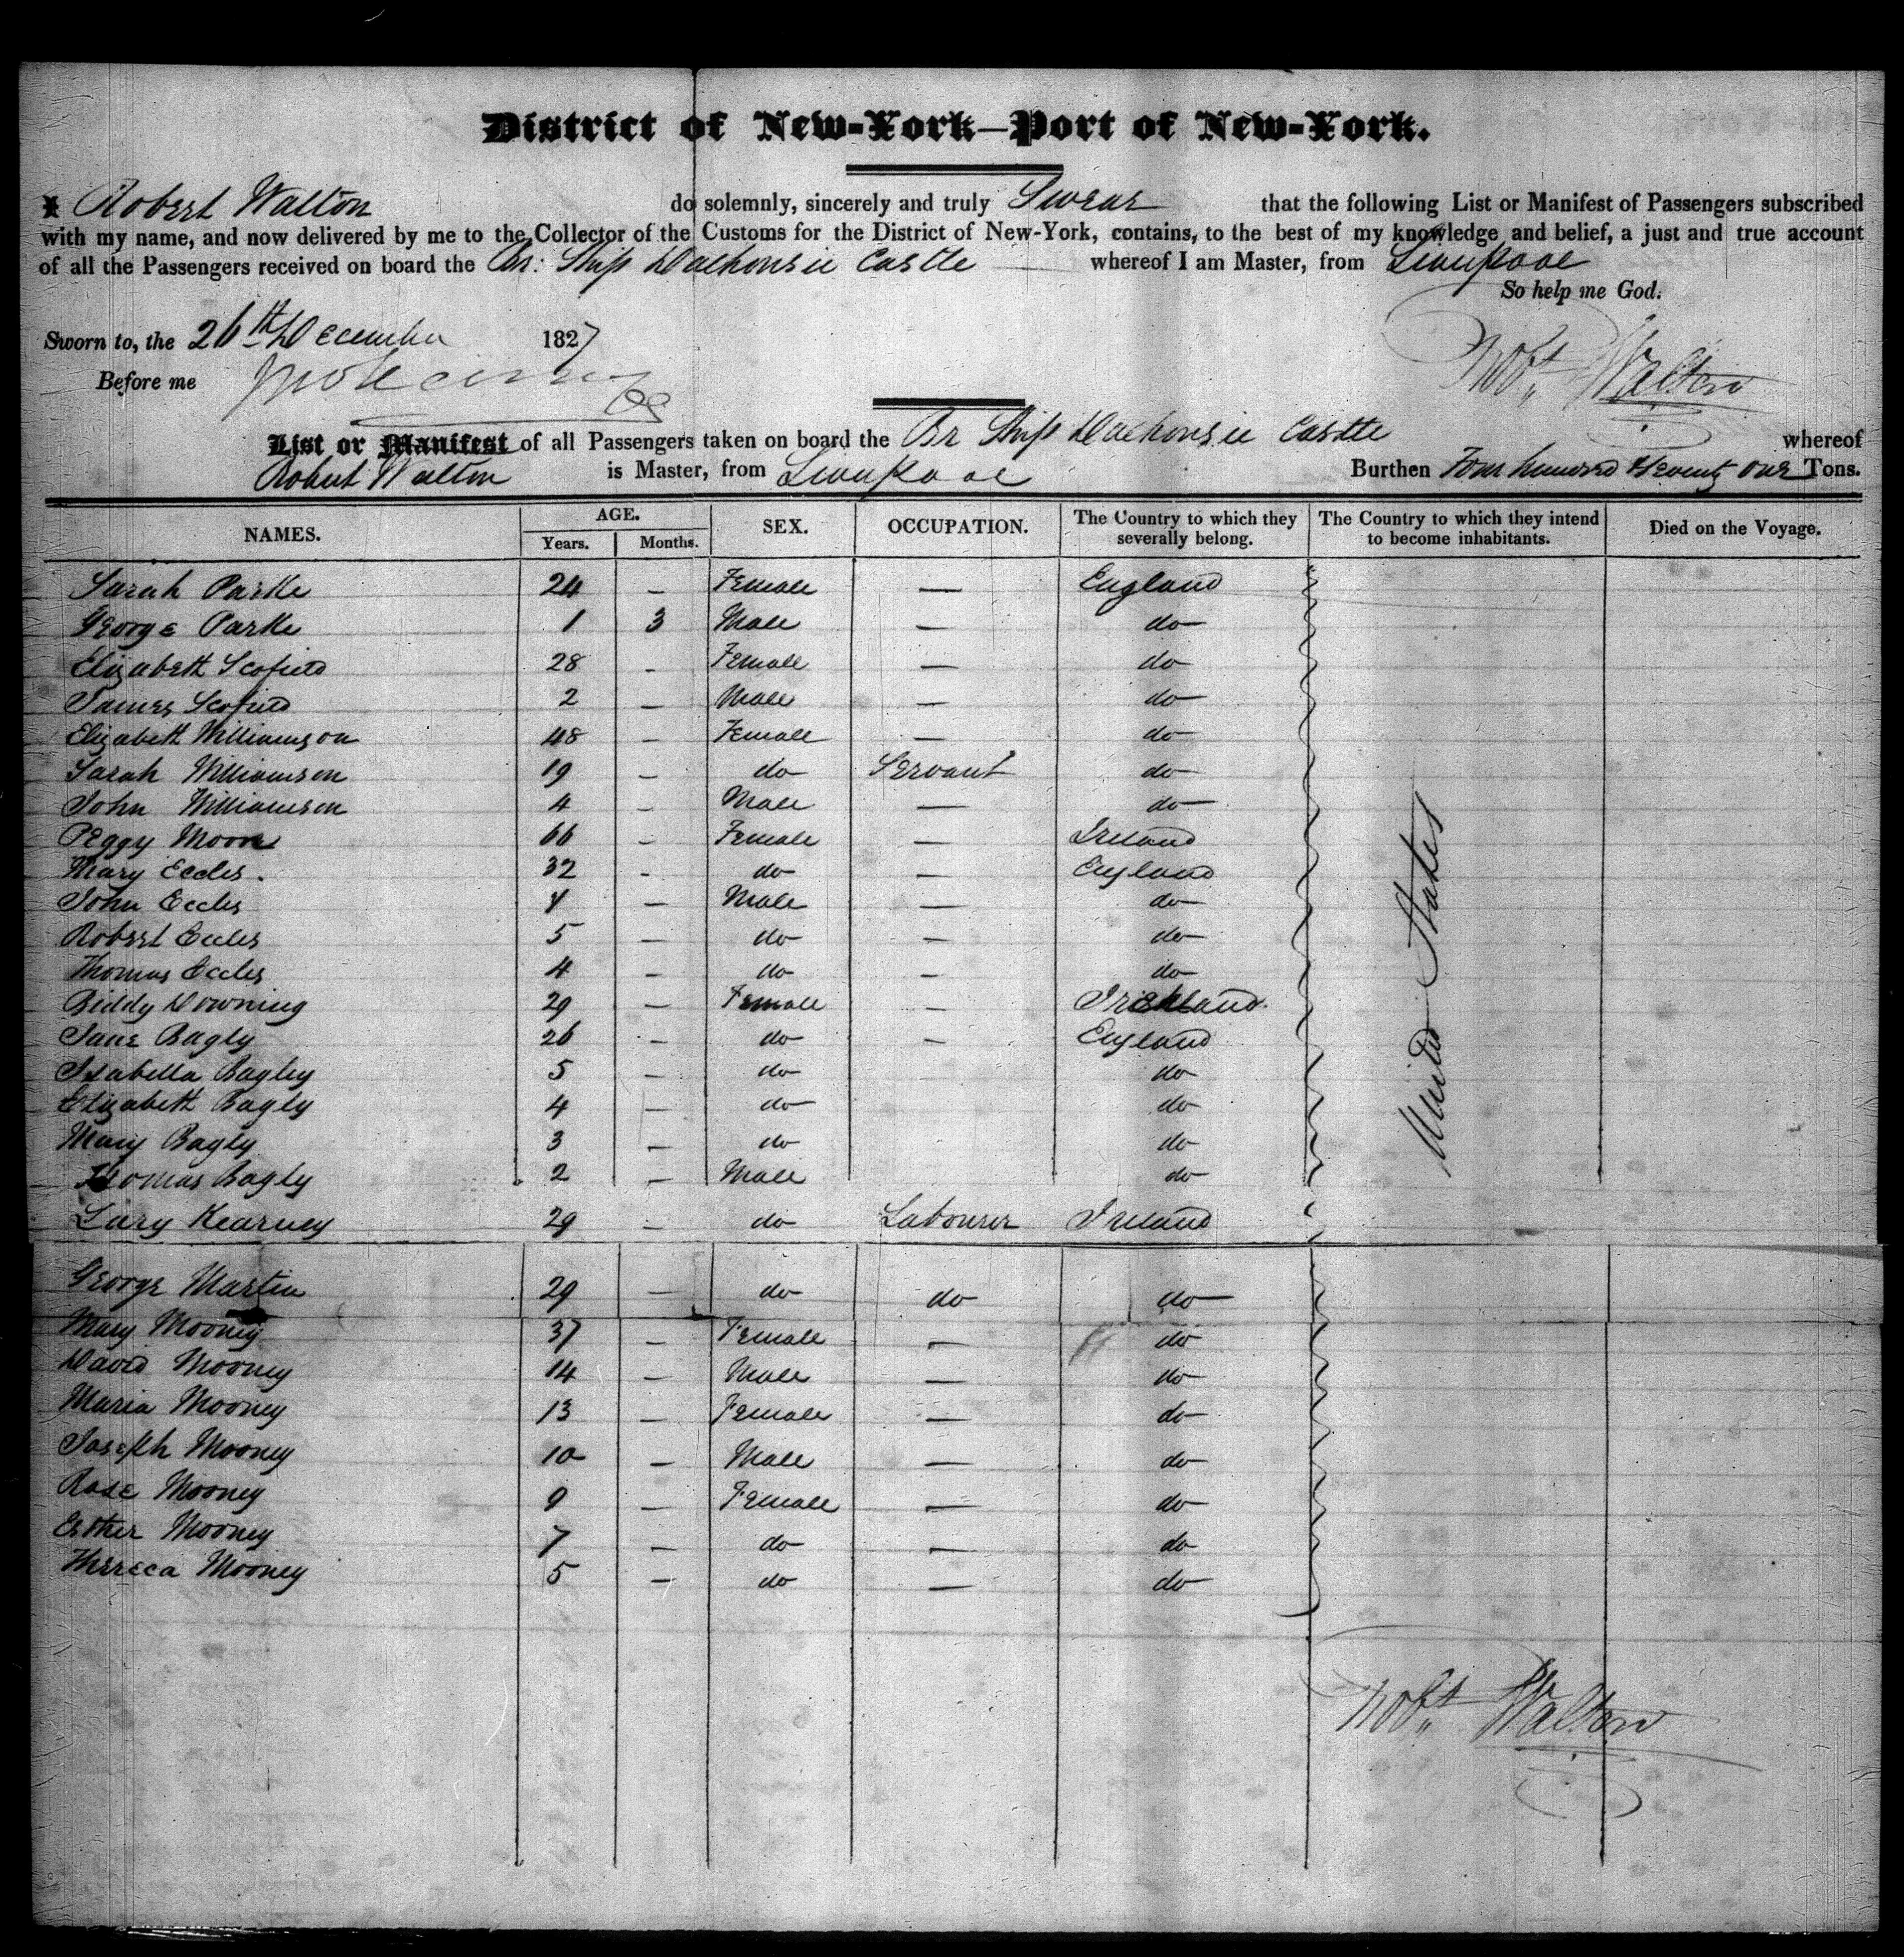 District of New-York—Port of New-York.
I Robert Walton do solemnly, sincerely and truly Swear that the following List or Manifest of Passengers subscribed
with my name, and now delivered by me to the Collector of the Customs for the District of New-York, contains, to the best of my knowledge and belief, a just and true account
of all the Passengers received on board the Br: Ship Dalhousie Castle whereof I am Master, from Liverpool
So help me God.
Sworn to, the 26th December 1827
Robt Walton
Before me
List or Manifest of all Passengers taken on board the Br Ship Dalhousie Castle whereof
Robert Walton is Master, from Liverpool Burthen Four hundred & Seventy one Tons.
NAMES. AGE. Years. Months. SEX. OCCUPATION. The Country to which they severally belong. The Country to which they intend to become inhabitants. Died on the Voyage.
Sarah Parke 24 — Female — England
George Parke 1 3 Male — do
Elizabeth Scofield 28 — Female — do
James Scofield 2 — Male — do
Elizabeth Williamson 48 — Female — do
Sarah Williamson 19 — do Servant do
John Williamson 4 — Male — do
Peggy Moore 66 — Female — Ireland
Mary Eccles. 32 — do — England
John Eccles 7 — Male — do
Robert Eccles 5 — do — do
Thomas Eccles 4 — do — do
Biddy Downing 29 — Female — Ireland
Jane Bagly 26 — do — England
Isabella Bagley 5 — do do
Elizabeth Bagly 4 — do do
Mary Bagly 3 — do do
Thomas Bagly 2 — Male do
United States
Lary Kearney 29 — do Labourer Ireland
George Martin 29 — do do do
Mary Mooney 37 — Female — do
David Mooney 14 — Male — do
Maria Mooney 13 — Female — do
Joseph Mooney 10 — Male — do
Rose Mooney 9 — Female — do
Esther Mooney 7 — do — do
Thereca Mooney 5 — do — do
Robt Walton